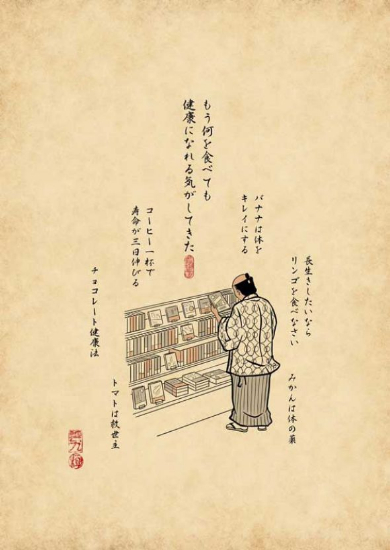 もう何を食べても
健康になれる気がしてきた
長生きしたいなら
リンゴを食べなさい
みかんは体の薬
バナナは体を
キレイにする
コーヒー一杯で
寿命が三日伸びる
トマトは救世主
チョコレート健康法